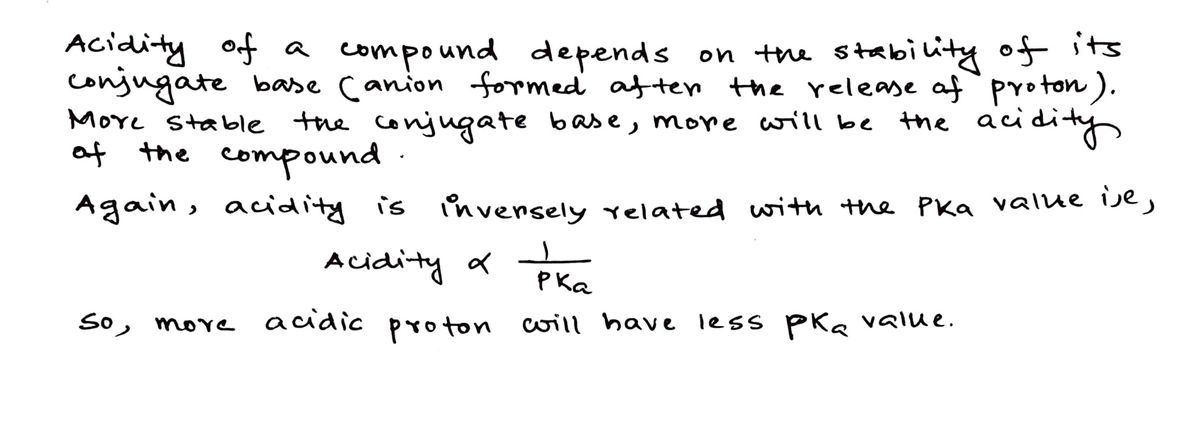 Acidity of a compound depends on the stability of its
conjugate base (anion formed after the release of proton).
More stable the conjugate base, more will be the acidity
of the compound.
Again, acidity is inversely related with the PKa value i.e,
Acidity ∝ 1/PKa
So, more acidic proton will have less pKa value.